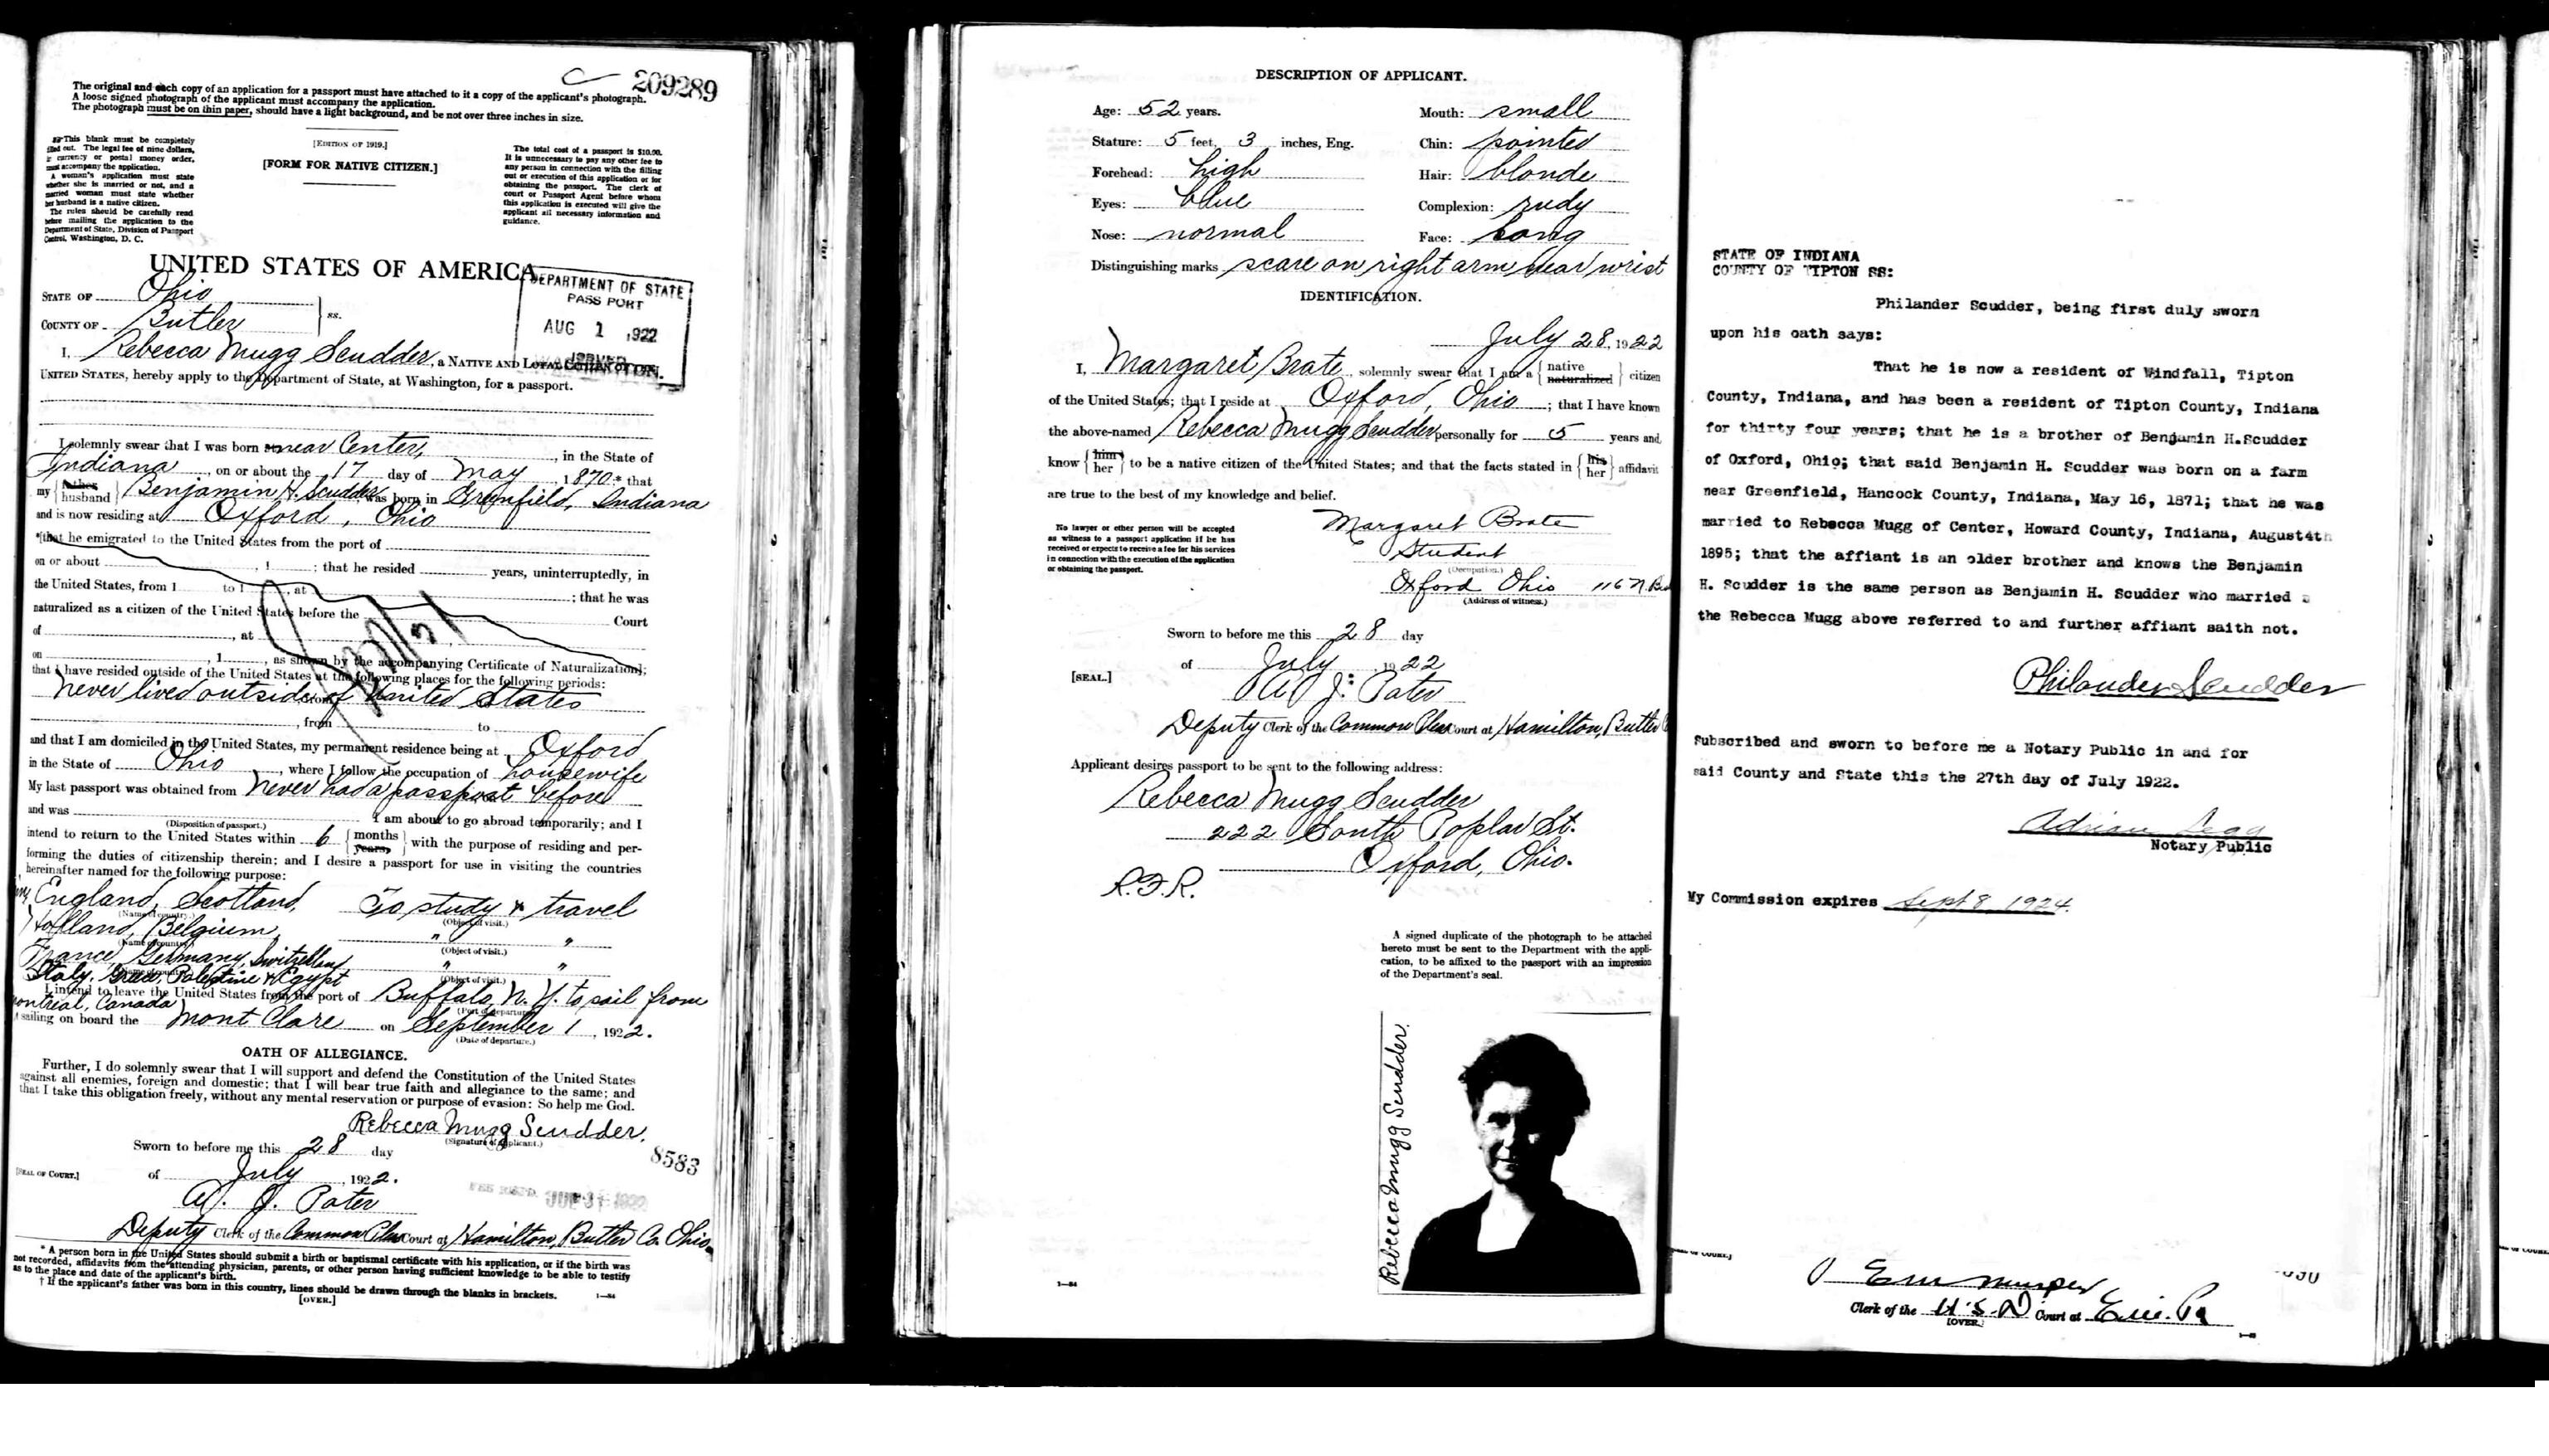 209289
The original and each copy of an application for a passport must have attached to it a copy of the applicant's photograph.
A loose signed photograph of the applicant must accompany the application.
The photograph must be on thin paper, should have a light background, and be not over three inches in size.
This blank must be completely
filled out. The legal fee of nine dollars,
in currency or postal money order,
must accompany the application.
A woman's application must state
whether she is married or not, and a
married woman must state whether
her husband is a native citizen.
The rules should be carefully read
before mailing the application to the
Department of State, Division of Passport
Control, Washington, D. C.
[EDITION OF 1919.]
[FORM FOR NATIVE CITIZEN.]
The total cost of a passport is $10.00.
It is unnecessary to pay any other fee to
any person in connection with the filling
out or execution of this application or for
obtaining the passport. The clerk of
court or Passport Agent before whom
this application is executed will give the
applicant all necessary information and
guidance.
UNITED STATES OF AMERICA
DEPARTMENT OF STATE
PASSPORT
AUG 1 1922
ISSUED
WASHINGTON.
STATE OF Ohio
COUNTY OF Butler ss.
I, Rebecca Mugg Scudder, a NATIVE AND LOYAL CITIZEN OF THE
UNITED STATES, hereby apply to the Department of State, at Washington, for a passport.
I solemnly swear that I was born near Center, in the State of
Indiana, on or about the 17 day of May, 1870* that
my {father husband} Benjamin H. Scudder was born in Greenfield, Indiana
and is now residing at Oxford, Ohio
*[that he emigrated to the United States from the port of
on or about , 1 ; that he resided years, uninterruptedly, in
the United States, from 1 to 1 , at ; that he was
naturalized as a citizen of the United States before the Court
of , at
on , 1 , as shown by the accompanying Certificate of Naturalization];
that I have resided outside of the United States at the following places for the following periods:
never lived outside of United States
, from to
and that I am domiciled in the United States, my permanent residence being at Oxford
in the State of Ohio, where I follow the occupation of housewife
My last passport was obtained from never had a passport before
and was (Disposition of passport.) I am about to go abroad temporarily; and I
intend to return to the United States within 6 {months years,} with the purpose of residing and per-
forming the duties of citizenship therein; and I desire a passport for use in visiting the countries
hereinafter named for the following purpose:
England, Scotland, To study & travel
(Name of country.) (Object of visit.)
Holland, Belgium, " "
(Name of country.) (Object of visit.)
France, Germany, Switzerland " "
Italy, Greece, Palestine & Egypt
(Name of country.) (Object of visit.)
I intend to leave the United States from the port of Buffalo, N. Y. to sail from
Montrial, Canada (Port of departure.)
sailing on board the Mont Clare on September 1, 1922.
(Date of departure.)
OATH OF ALLEGIANCE.
Further, I do solemnly swear that I will support and defend the Constitution of the United States
against all enemies, foreign and domestic; that I will bear true faith and allegiance to the same; and
that I take this obligation freely, without any mental reservation or purpose of evasion: So help me God.
Rebecca Mugg Scudder.
(Signature of applicant.)
Sworn to before me this 28 day
8583
[SEAL OF COURT.] of July, 1922.
A. J. Pater
Deputy Clerk of the Common Pleas Court at Hamilton, Butler Co. Ohio
* A person born in the United States should submit a birth or baptismal certificate with his application, or if the birth was
not recorded, affidavits from the attending physician, parents, or other person having sufficient knowledge to be able to testify
as to the place and date of the applicant's birth.
† If the applicant's father was born in this country, lines should be drawn through the blanks in brackets.
[OVER.]
1—84
DESCRIPTION OF APPLICANT.
Age: 52 years. Mouth: small
Stature: 5 feet, 3 inches, Eng. Chin: pointed
Forehead: high Hair: blonde
Eyes: blue Complexion: rudy
Nose: normal Face: long
Distinguishing marks scare on right arm near wrist
IDENTIFICATION.
July 28, 1922
I, Margaret Brate, solemnly swear that I am a {native naturalized} citizen
of the United States; that I reside at Oxford, Ohio; that I have known
the above-named Rebecca Mugg Scudder personally for 5 years and
know {him her} to be a native citizen of the United States; and that the facts stated in {his her} affidavit
are true to the best of my knowledge and belief.
No lawyer or other person will be accepted
as witness to a passport application if he has
received or expects to receive a fee for his services
in connection with the execution of the application
or obtaining the passport.
Margaret Brate
Student
(Occupation.)
Oxford Ohio 116 N.
(Address of witness.)
Sworn to before me this 28 day
of July 1922
[SEAL.]
A. J. Pater
Deputy Clerk of the Common Pleas Court at Hamilton, Butler
Applicant desires passport to be sent to the following address:
Rebecca Mugg Scudder
222 South Poplar St.
Oxford, Ohio.
R.F.R.
A signed duplicate of the photograph to be attached
hereto must be sent to the Department with the appli-
cation, to be affixed to the passport with an impression
of the Department's seal.
Rebecca Mugg Scudder.
1—84
STATE OF INDIANA
COUNTY OF TIPTON SS:
Philander Scudder, being first duly sworn
upon his oath says:
That he is now a resident of Windfall, Tipton
County, Indiana, and has been a resident of Tipton County, Indiana
for thirty four years; that he is a brother of Benjamin H.Scudder
of Oxford, Ohio; that said Benjamin H. Scudder was born on a farm
near Greenfield, Hancock County, Indiana, May 16, 1871; that he was
married to Rebecca Mugg of Center, Howard County, Indiana, August4th
1895; that the affiant is an older brother and knows the Benjamin
H. Scudder is the same person as Benjamin H. Scudder who married
the Rebecca Mugg above referred to and further affiant saith not.
Philander Scudder
Subscribed and sworn to before me a Notary Public in and for
said County and State this the 27th day of July 1922.
Adrian Legg
Notary Public
My Commission expires Sept 8 1924.
Clerk of the U.S.D Court at Erie. Pa
[OVER.]